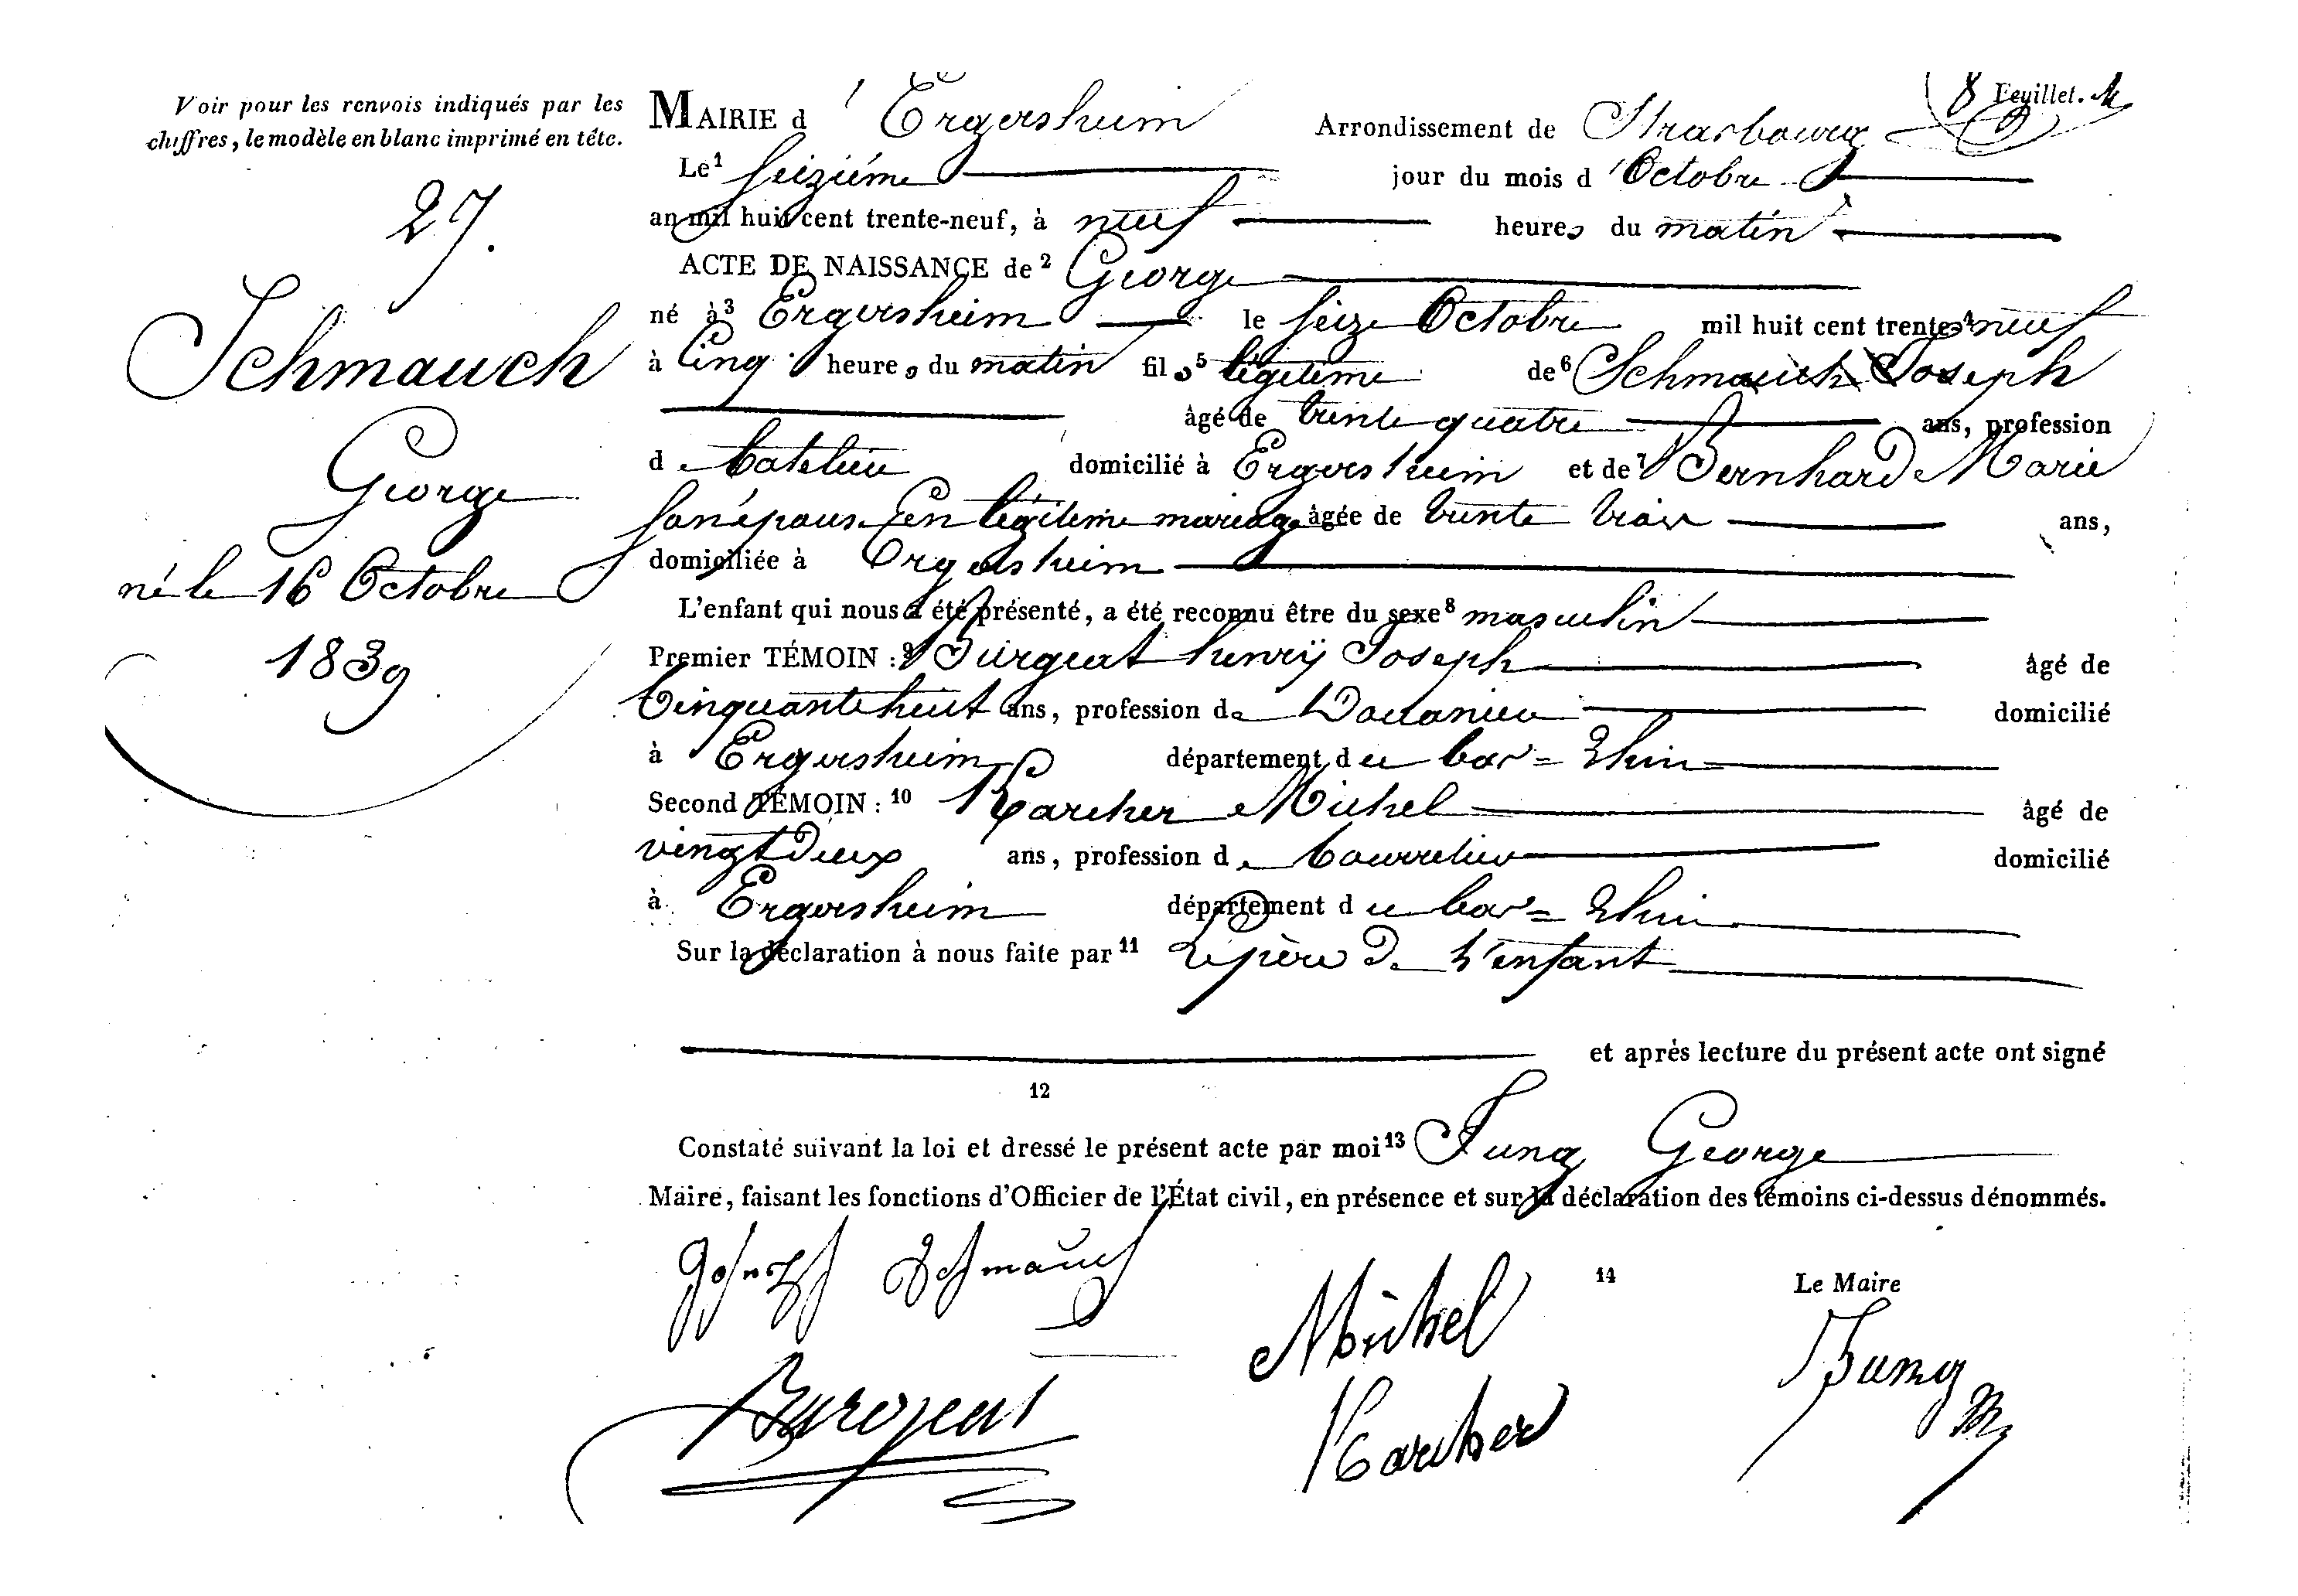 Voir pour les renvois indiqués par les
chiffres, le modèle en blanc imprimé en tête.
27.
Schmauch
George
né le 16 Octobre
1839
8 Feuillet.
MAIRIE d'Ergersheim Arrondissement de Strasbourg
Le¹ seiziéme jour du mois d'Octobre
an mil huit cent trente-neuf, à neuf heures du matin
ACTE DE NAISSANCE de² George
né à³ Ergersheim le seize Octobre mil huit cent trente⁴ neuf
à Cinq heures du matin fils⁵ légitime de⁶ Schmauch Joseph
âgé de trente quatre ans, profession
de batelier domicilié à Ergersheim et de⁷ Bernhard Marie
son épouse En légitime mariage âgée de trente trois ans,
domiciliée à Ergersheim
L'enfant qui nous a été présenté, a été reconnu être du sexe⁸ masculin
Premier TÉMOIN :⁹ Burgeat henrÿ Joseph âgé de
Cinquante huit ans, profession de Douanier domicilié
à Ergersheim département du bas=Rhin
Second TÉMOIN : ¹⁰ Karcher Michel âgé de
vingt Deux ans, profession de bourrelier domicilié
à Ergersheim département du bas=Rhin
Sur la déclaration à nous faite par¹¹ Le père De L'enfant
et après lecture du présent acte ont signé
12
Constaté suivant la loi et dressé le présent acte par moi¹³ Jung George
Maire, faisant les fonctions d'Officier de l'État civil, en présence et sur la déclaration des témoins ci-dessus dénommés.
Joseph Schmauch
14
Le Maire
Michel
Karcher
Jung
Burgeat